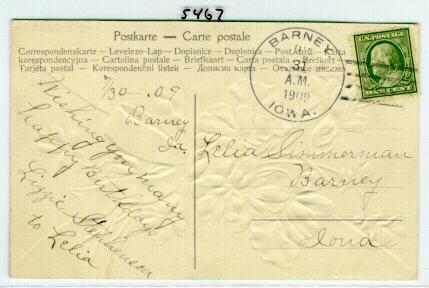 5467
Postkarte — Carte postale
Correspondenzkarte — Levelezo-Lap — Dopisnice — Dopisnica — Postkarte — Karta
korespondencyjna — Cartolina postale — Briefkaart — Carta postala — Brefkort —
Tarjeta postal — Korespondenčni listek — Описное письмо
BARNEY
JUL
31
A.M.
1909
IOWA.
U.S. POSTAGE
ONE CENT
7/30 - 09
Barney
Ia.
Wishing you many
happy Birthdays
Lizzie Stephenson
to Lelia
Lelia Simmerman
Barney
Iowa